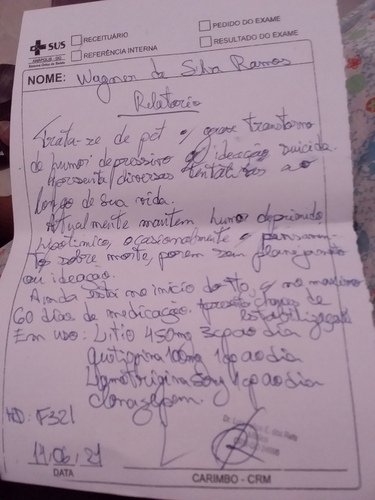 SUS
ANÁPOLIS - GO
Sistema Único de Saúde
RECEITUÁRIO
REFERÊNCIA INTERNA
PEDIDO DO EXAME
RESULTADO DO EXAME
NOME: Wagner da Silva Ramos
Relatório
Trata-se de pct c/ grave transtorno
de humor depressivo c/ ideação suicida.
Apresenta diversas tentativas ao
longo de sua vida.
Atualmente mantem humor deprimido
ocasionalmente c/ pensamen-
tos sobre morte, porem sem planejamento
ou ideação.
Ainda está no início do tto, c/ no maximo
60 dias de medicação. chances de
estabilização
Em uso: Litio 450mg 3cp ao dia
quetiapina 100mg 1cp ao dia
Lamotrigina 50mg 1cp ao dia
clonazepam.
HD: F321
11/06/21
DATA
CARIMBO - CRM